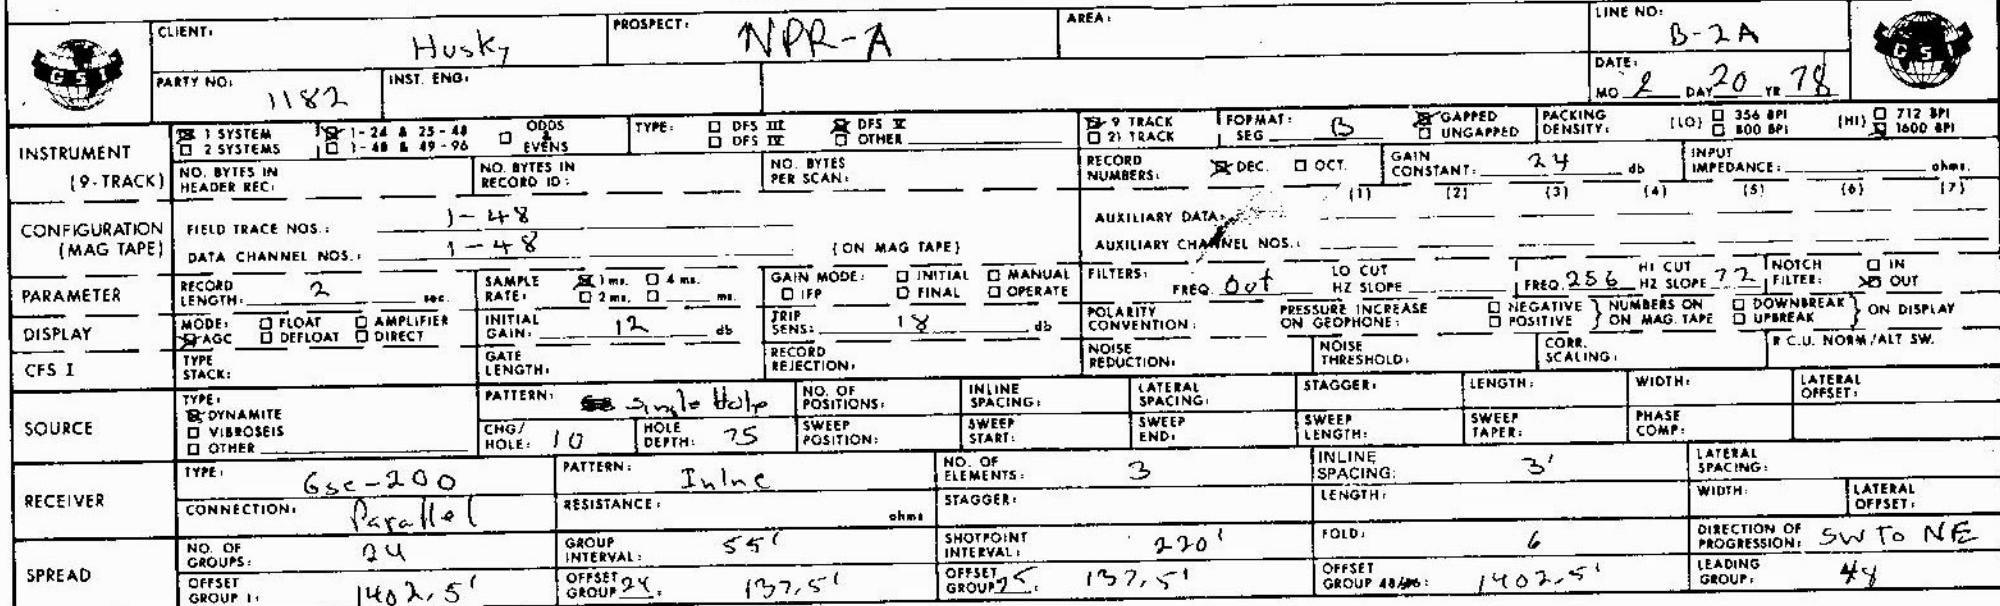 CLIENT: Husky PROSPECT: NPR-A AREA: LINE NO: B-2A
GSI GSI
PARTY NO: 1182 INST. ENG: DATE: MO 2 DAY 20 YR 78
INSTRUMENT (9-TRACK)
☒ 1 SYSTEM ☒ 1-24 & 25-48 ☐ ODDS & EVENS TYPE: ☐ DFS III ☒ DFS V ☒ 9 TRACK FORMAT: SEG B ☒ GAPPED PACKING DENSITY: (LO) ☐ 356 BPI (HI) ☐ 712 BPI
☐ 2 SYSTEMS ☐ 1-48 & 49-96 ☐ DFS IV ☐ OTHER ☐ 21 TRACK ☐ UNGAPPED ☐ 800 BPI ☒ 1600 BPI
NO. BYTES IN HEADER REC: NO. BYTES IN RECORD ID: NO. BYTES PER SCAN: RECORD NUMBERS: ☒ DEC. ☐ OCT. GAIN CONSTANT: 24 db INPUT IMPEDANCE: ohms.
(1) (2) (3) (4) (5) (6) (7)
CONFIGURATION (MAG TAPE)
FIELD TRACE NOS.: 1-48 AUXILIARY DATA:
DATA CHANNEL NOS.: 1-48 (ON MAG TAPE) AUXILIARY CHANNEL NOS.:
PARAMETER
RECORD LENGTH: 2 sec. SAMPLE RATE: ☒ 1 ms. ☐ 4 ms. ☐ 2 ms. ☐ ms. GAIN MODE: ☐ INITIAL ☐ MANUAL ☐ IFP ☐ FINAL ☐ OPERATE FILTERS: FREQ. Out LO CUT HZ SLOPE FREQ. 256 HI CUT HZ SLOPE 72 NOTCH FILTER: ☐ IN ☒ OUT
DISPLAY
MODE: ☐ FLOAT ☐ AMPLIFIER ☒ AGC ☐ DEFLOAT ☐ DIRECT INITIAL GAIN: 12 db TRIP SENS: 18 db POLARITY CONVENTION: PRESSURE INCREASE ON GEOPHONE: ☐ NEGATIVE ☐ POSITIVE } NUMBERS ON ON MAG. TAPE ☐ DOWNBREAK ☐ UPBREAK } ON DISPLAY
CFS I
TYPE STACK: GATE LENGTH: RECORD REJECTION: NOISE REDUCTION: NOISE THRESHOLD: CORR. SCALING: R C.U. NORM/ALT SW.
SOURCE
TYPE: ☒ DYNAMITE ☐ VIBROSEIS ☐ OTHER
PATTERN: Single Hole NO. OF POSITIONS: INLINE SPACING: LATERAL SPACING: STAGGER: LENGTH: WIDTH: LATERAL OFFSET:
CHG/HOLE: 10 HOLE DEPTH: 75 SWEEP POSITION: SWEEP START: SWEEP END: SWEEP LENGTH: SWEEP TAPER: PHASE COMP:
RECEIVER
TYPE: Gsc-200 PATTERN: Inlne NO. OF ELEMENTS: 3 INLINE SPACING: 3' LATERAL SPACING:
CONNECTION: Parallel RESISTANCE: ohms STAGGER: LENGTH: WIDTH: LATERAL OFFSET:
SPREAD
NO. OF GROUPS: 24 GROUP INTERVAL: 55' SHOTPOINT INTERVAL: 220' FOLD: 6 DIRECTION OF PROGRESSION: SW TO NE
OFFSET GROUP 1: 1402.5' OFFSET GROUP 24: 137.5' OFFSET GROUP 25: 137.5' OFFSET GROUP 48/96: 1402.5' LEADING GROUP: 48